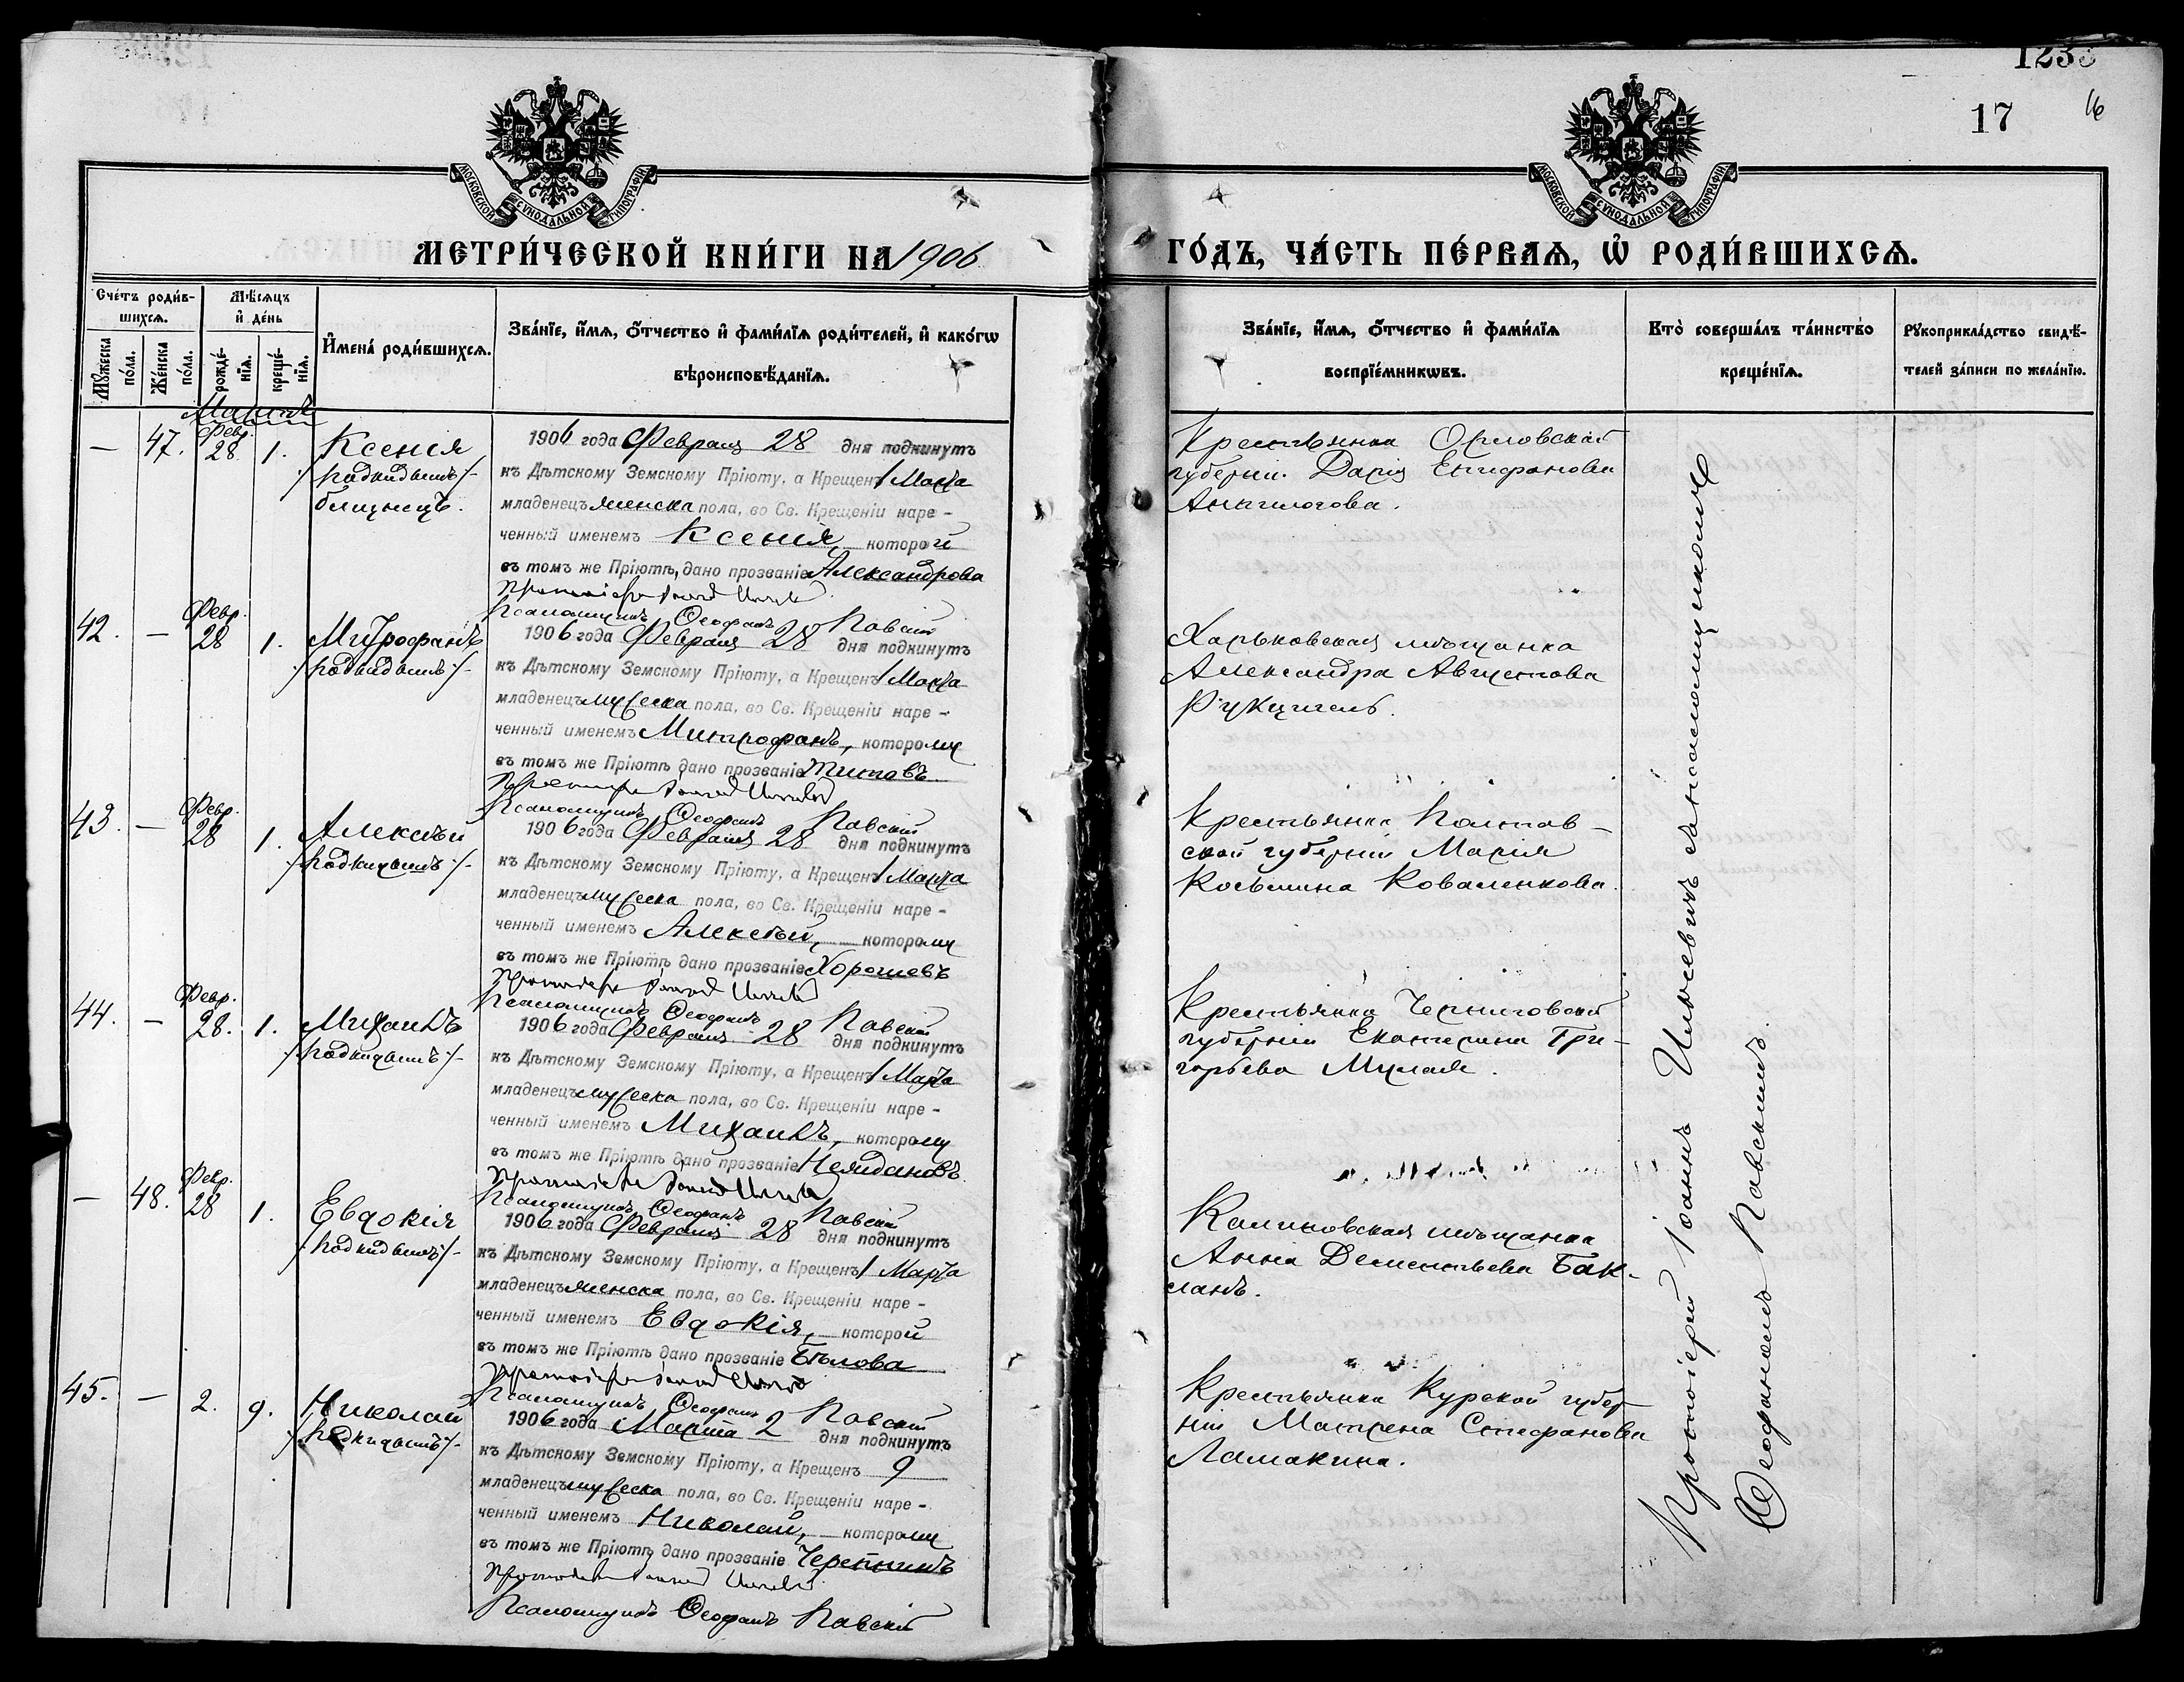 1233
17
16
МОСКОВСКОЙ СѴНОДАЛЬНОЙ ТИПОГРАФІИ
МОСКОВСКОЙ СѴНОДАЛЬНОЙ ТИПОГРАФІИ
МЕТРИ́ЧЕСКОЙ КНИ́ГИ НА 1906
ГО́ДЪ, ЧА́СТЬ ПЕ́РВАѦ, Ѡ҆ РОДИ́ВШИХСѦ.
Сче́тъ роди́в-
шихсѧ.
Мꙋ́жеска по́ла.
Же́нска по́ла.
Мѣ́сѧцъ
и҆ де́нь
рожде́-
нїѧ.
креще́-
нїѧ.
И҆мена̀ роди́вшихсѧ.
Зва́нїе, и҆́мѧ, ѻ҆́тчество и҆ фами́лїѧ роди́телей, и҆ како́гѡ
вѣроисповѣ́данїѧ.
Зва́нїе, и҆́мѧ, ѻ҆́тчество и҆ фами́лїѧ
воспрїе́мникѡвъ.
Кто̀ соверша́лъ та́инство
креще́нїѧ.
Рꙋкоприкла́дство свидѣ́-
телей за́писи по жела́нїю.
Мартъ
— 47. Февр. 28. 1. Ксенія
/: подкидышъ :/-
близнецъ.
1906 года Февраля 28 дня подкинутъ
къ Дѣтскому Земскому Пріюту, а Крещенъ 1 Марта
младенецъ женска пола, во Св. Крещеніи наре -
ченный именемъ Ксенія, которой
въ томъ же Пріютѣ, дано прозваніе Александрова
Протоіерей Іоаннъ
Псаломщикъ Ѳеофанъ Павскій
Крестьянка Орловской
губерніи. Дарія Епифанова
Анпилогова.
42. — Февр. 28 1. Митрофанъ
/: подкидышъ :/-
1906 года Февраля 28 дня подкинутъ
къ Дѣтскому Земскому Пріюту, а Крещенъ 1 Марта
младенецъ мужеска пола, во Св. Крещеніи наре -
ченный именемъ Митрофанъ, которому
въ томъ же Пріютѣ дано прозваніе Титовъ
Протоіерей Іоаннъ
Псаломщикъ Ѳеофанъ Павскій
Харьковская мѣщанка
Александра Августова
43. — Февр. 28 1. Алексѣй
/: подкидышъ :/-
1906 года Февраля 28 дня подкинутъ
къ Дѣтскому Земскому Пріюту, а Крещенъ 1 Марта
младенецъ мужеска пола, во Св. Крещеніи наре -
ченный именемъ Алексѣй, которому
въ томъ же Пріютѣ дано прозваніе Хорошевъ
Протоіерей Іоаннъ
Псаломщикъ Ѳеофанъ Павскій
Крестьянка Полтав-
ской губерніи Марія
Косьмина Коваленкова.
44. — Февр. 28. 1. Михаилъ
/: подкидышъ :/-
1906 года Февраля 28 дня подкинутъ
къ Дѣтскому Земскому Пріюту, а Крещенъ 1 Марта
младенецъ мужеска пола, во Св. Крещеніи наре -
ченный именемъ Михаилъ, которому
въ томъ же Пріютѣ дано прозваніе Нежидановъ
Протоіерей Іоаннъ
Псаломщикъ Ѳеофанъ Павскій
Крестьянка Черниговской
губерніи Екатерина Гри-
горьева
— 48. Февр. 28 1. Евдокія
/: подкидышъ :/-
1906 года Февраля 28 дня подкинутъ
къ Дѣтскому Земскому Пріюту, а Крещенъ 1 Марта
младенецъ женска пола, во Св. Крещеніи наре -
ченный именемъ Евдокія, которой
въ томъ же Пріютѣ дано прозваніе Бѣлова
Протоіерей Іоаннъ
Псаломщикъ Ѳеофанъ Павскій
мѣщанка
Анна Дементьева Бак-
ланъ.
45. — 2. 9. Николай
/: подкидышъ :/-
1906 года Марта 2 дня подкинутъ
къ Дѣтскому Земскому Пріюту, а Крещенъ 9
младенецъ мужеска пола, во Св. Крещеніи наре -
ченный именемъ Николай, которому
въ томъ же Пріютѣ дано прозваніе Черепнинъ
Протоіерей Іоаннъ
Псаломщикъ Ѳеофанъ Павскій
Крестьянка Курской губер-
ніи Матрена Стефанова
Ламакина.
Протоіерей Іоаннъ Ильичевичъ съ псаломщикомъ
Ѳеофаномъ Павскимъ.